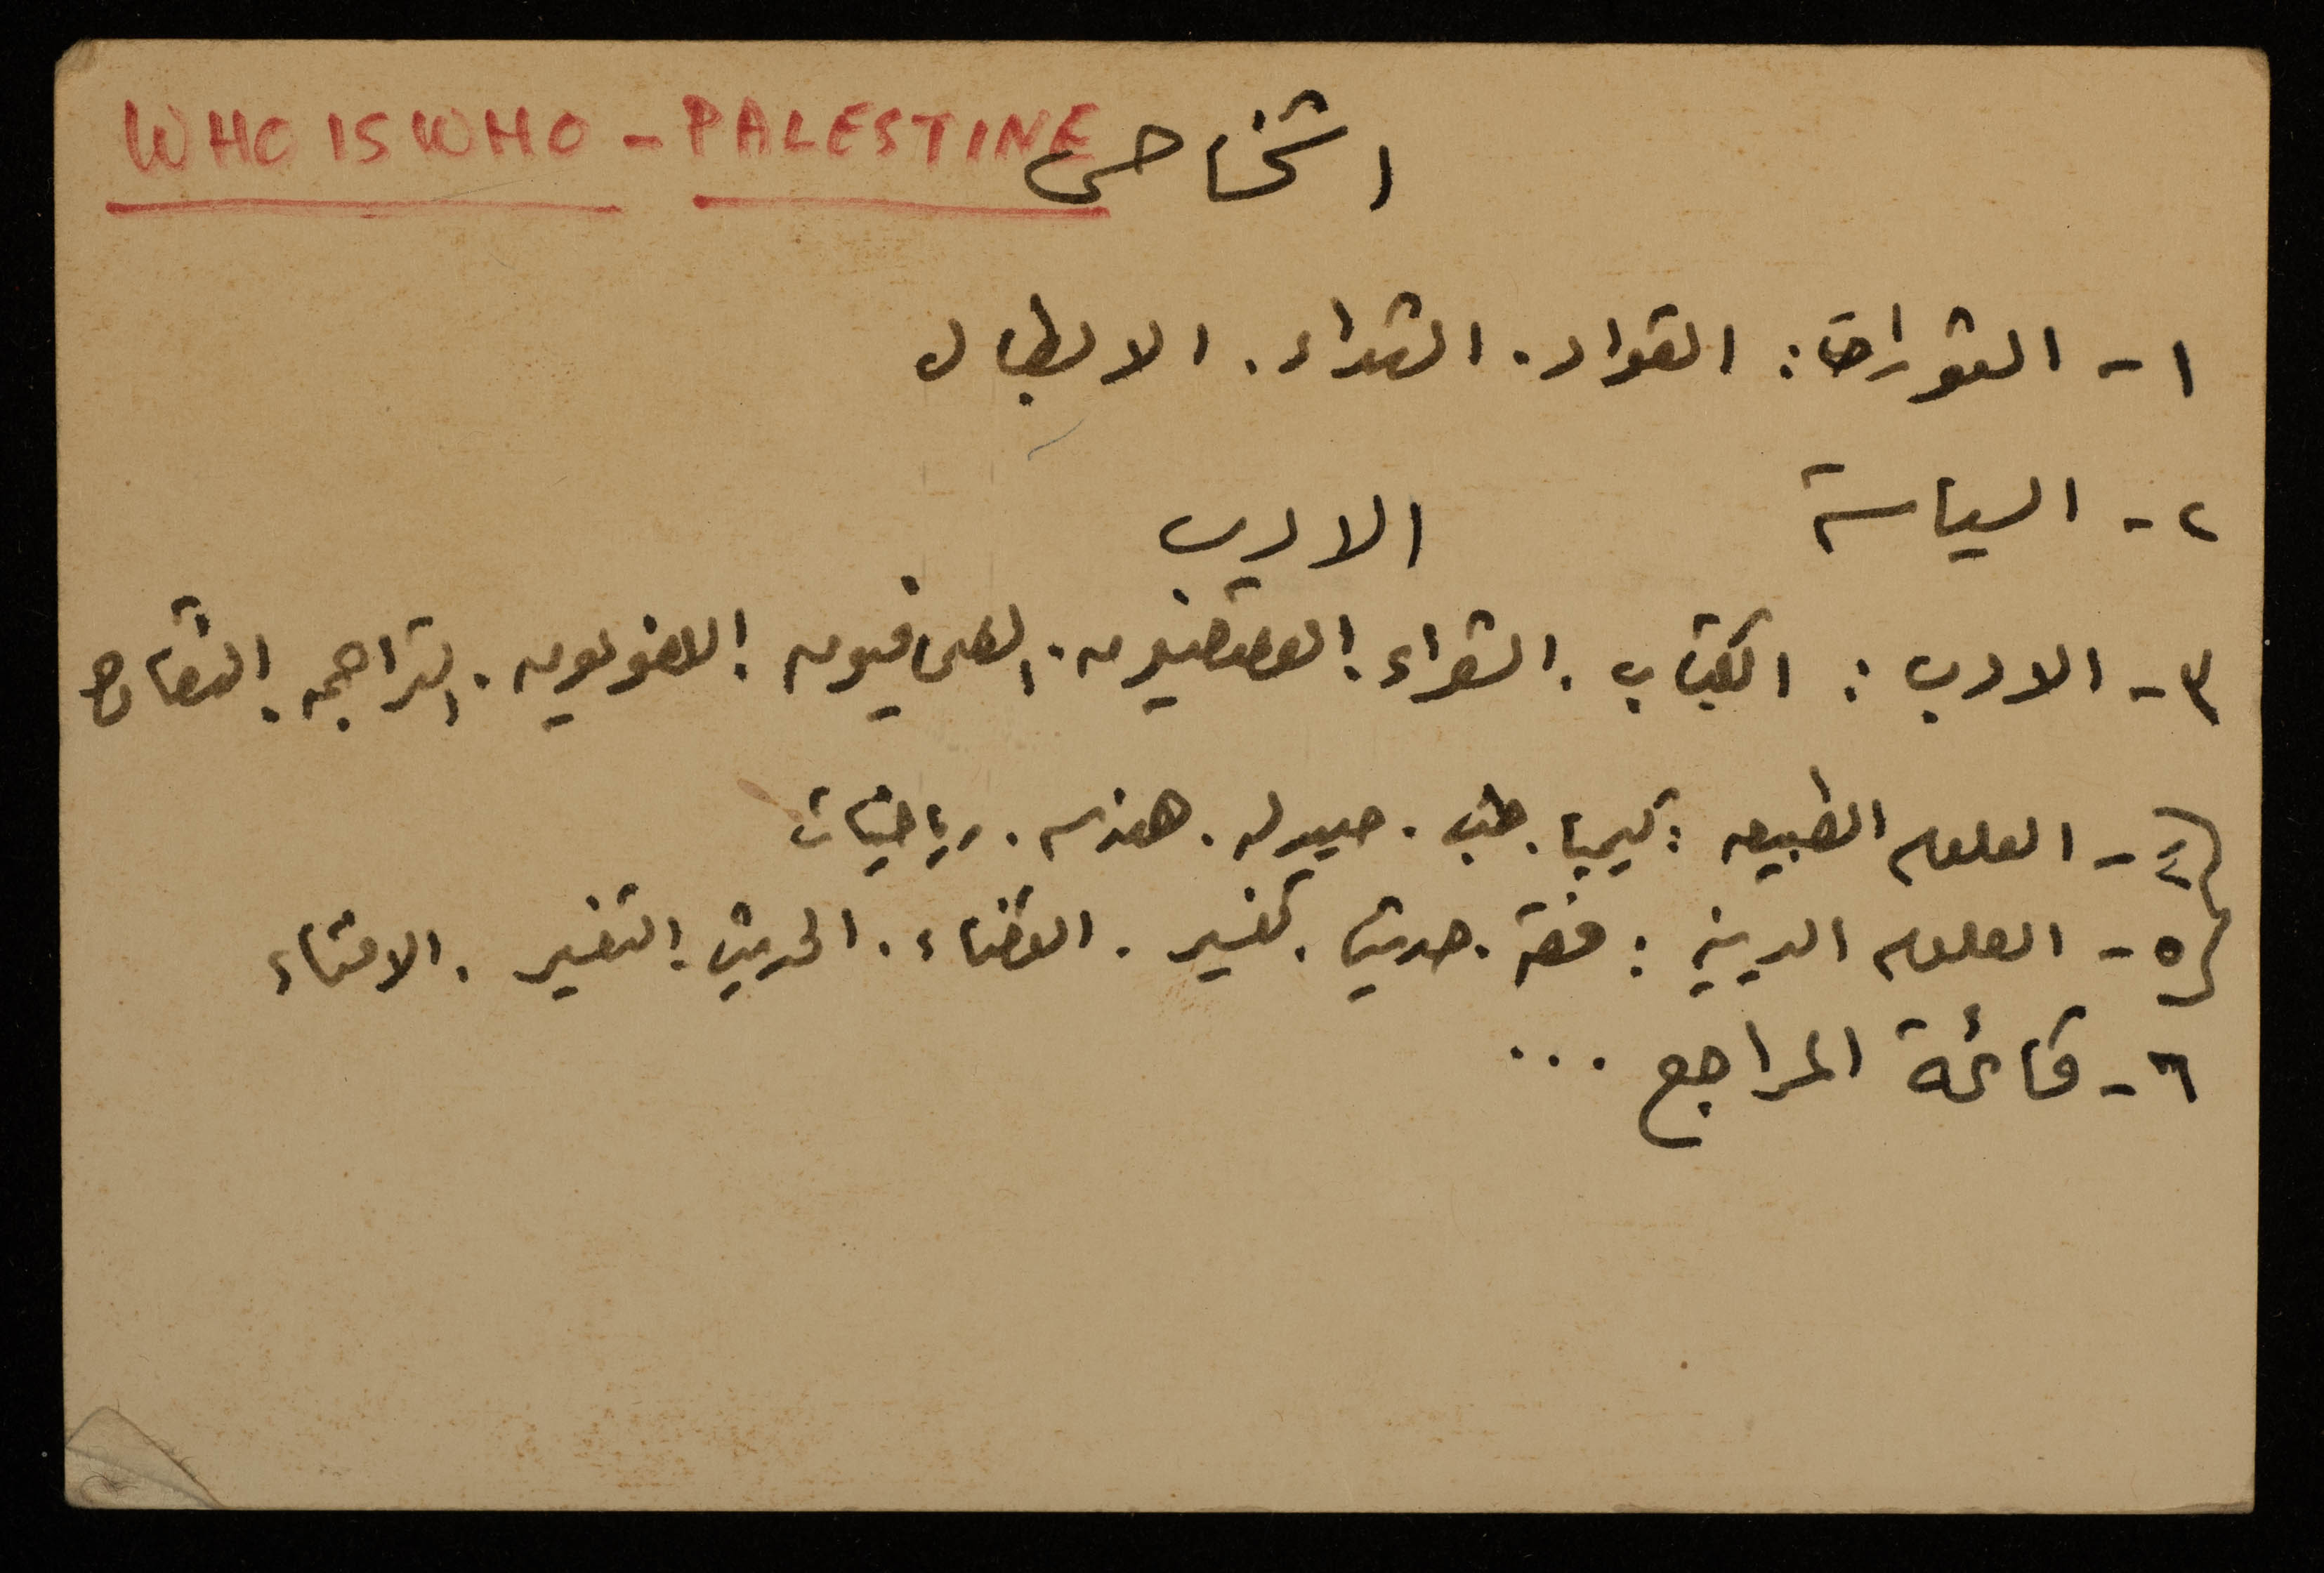 WHO IS WHO - PALESTINE
اشخاص
١- الثورات: القواد. الشهداء. الابطال
٢- السياسة
الاديب
٣- الادب: الكتاب. الشعراء. القصصيون. الصحافيون. اللغويون. التراجم.
٤- العلوم الطبيعه: كيميا. طب. صيدله. هندسه. رياضيات
٥- العلوم الدينية: فقه. حديث. تفسير. القضاء. الحديث. التفسير. الافتاء
٦- قائمة المراجع ...